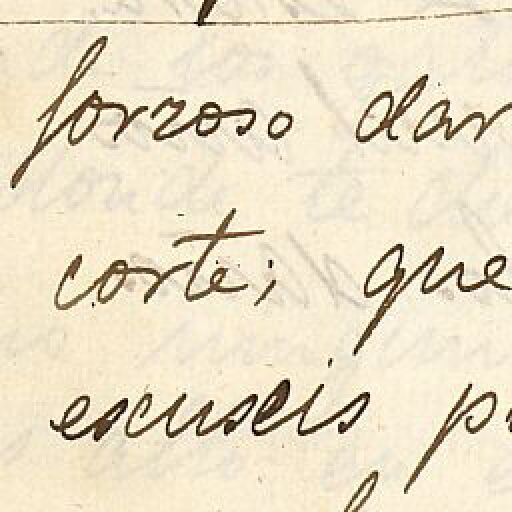 forzoso dar
corte; que
escuseis